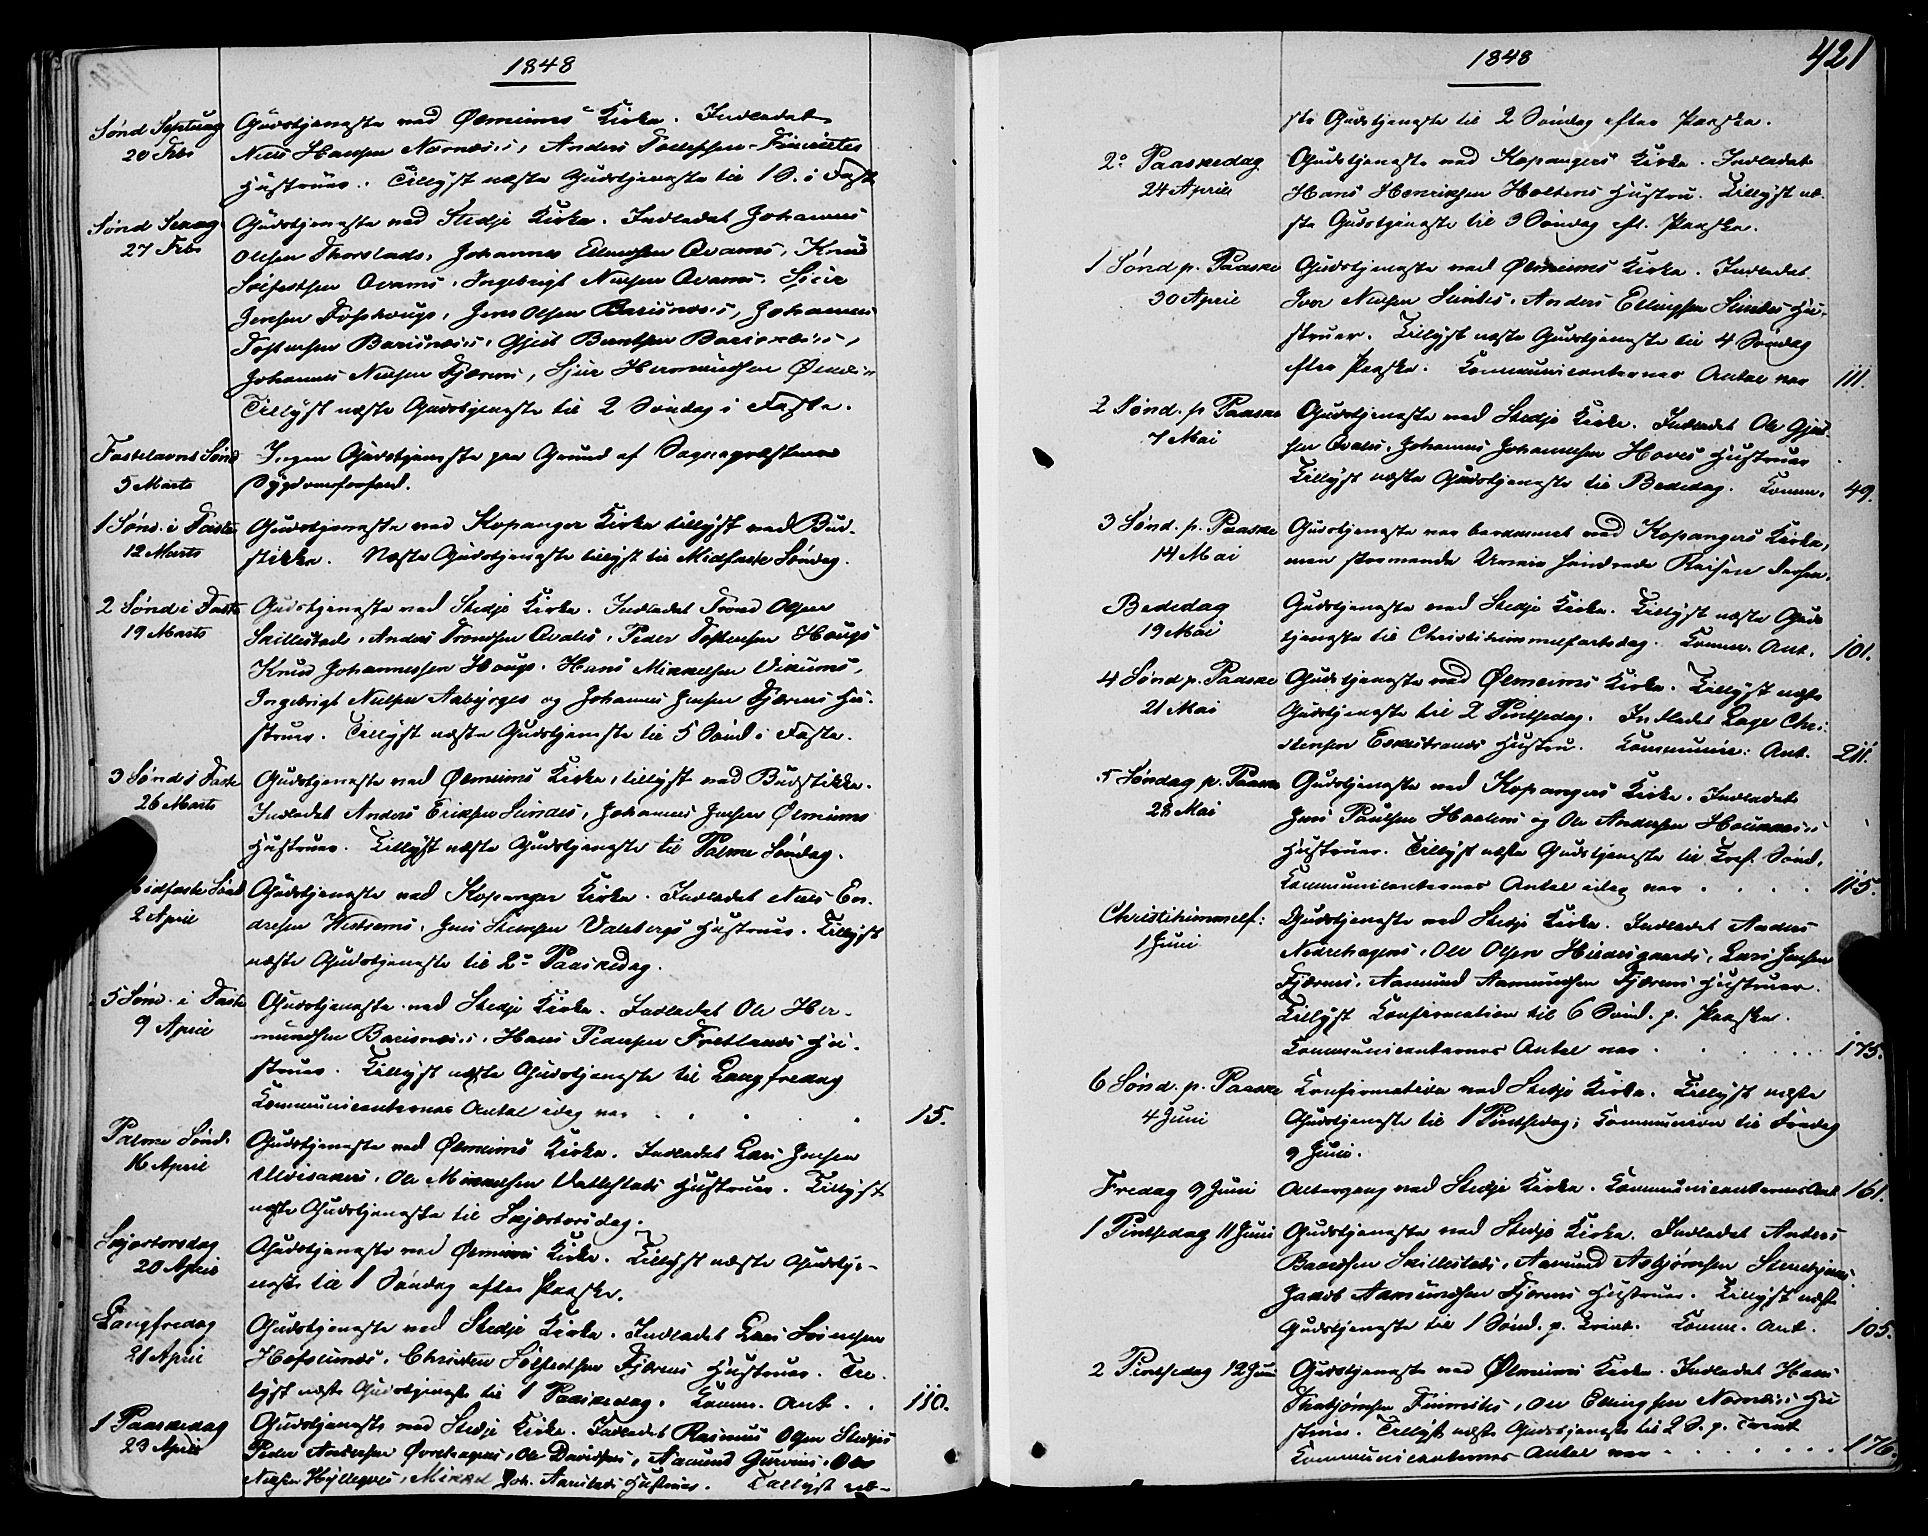 1848
Sønd Septuag
20 Febr
Gudstjeneste ved Ølmeims Kirke. Indledet
Niels Hansen Nornæs's, Anders Tollefsen Finnetes
Hustruer. Tillyst næste Gudstjeneste til 1 S. i Faste
Sønd Sexag
27 Febr
Gudstjeneste ved Stedje Kirke. Indledet Johannes
Olsen Thorstads, Johannes Ellendsen Qvams, Knud
Solfestsen Qvams, Ingebrigt Nielsen Qvams, Sjur
Jensen Foshougs, Jens Olsen Barsnæs's, Johannes
Tostensen Barsnæs's, Gjert Berntsen Barsnæs's,
Johannes Nielsen Fjærens, Sjur Hermundsen
Tillyst næste Gudstjeneste til 2 Søndag i Faste.
Fastelavns Sønd
5 Marts
Ingen Gudstjeneste paa Grund af Sognepræstens
Sygdomsforfald.
1 Sønd. i Faste
12 Marts
Gudstjeneste ved Kopanger Kirke tillyst ved Bud-
stikke. Næste Gudstjeneste tillyst til Midfaste Søndag.
2 Sønd i Faste
19 Marts
Gudstjeneste ved Stedje Kirke. Indledet Trond Olsen
Skillestads, Anders Trondsen Qvales, Peder Tostensen Hougs
Knud Johannessen Hougs, Hans Mikkelsen Vikums,
Ingebrigt Nielsen Aabyrges og Johannes Jensen Fjærens Hu-
struer. Tillyst næste Gudstjeneste til 5 Sønd i Faste.
3 Sønd i Faste
26 Marts
Gudstjeneste ved Ølmeims Kirke, tillyst ved Budstikke.
Indledet Anders Eriksen Slindes, Johannes Jensen Ølmeims
Hustruer. Tillyst næste Gudstjeneste til Palme Søndag.
Midfaste Sønd
2 April
Gudstjeneste ved Kopanger Kirke. Indledet Niels En-
dresen Vestrems, Jens Vatsbergs Hustruer. Tillyst
næste Gudstjeneste til 2den Paaskedag.
5 Sønd. i Faste
9 April
Gudstjeneste ved Stedje Kirke. Indledet Ole Her-
mundsen Barsnæs's, Hans Pedersen Fretlands Hu-
struer. Tillyst næste Gudstjeneste til Langfredag
Kommunicanternes Antal idag var . . . 15.
Palme Sønd.
16 April
Gudstjeneste ved Ølmeims Kirke. Indledet Lars Jensen
Ulvisakers, Ole Mikkelsen Vallestads Hustruer. Tillyst
næste Gudstjeneste til Skjærtorsdag.
Skjærtorsdag
20 April
Gudstjeneste ved Ølmeims Kirke. Tillyst næste Gudstje-
neste til 1 Søndag efter Paaske.
Langfredag
21 April
Gudstjeneste ved Stedje Kirke. Indledet Lars
Hofslunds, Christen Solfestsen Fjærens Hustruer. Til-
lyst næste Gudstjeneste til 1 Paaskedag. Komm. Ant. . . 110.
1 Paaskedag
23 April
Gudstjeneste ved Stedje Kirke. Indledet Rasmus Olsen Stedjes
Peder Andersen Øvrehagens, Ole Davidsens, Aamund Gurvins, Ole
Nielsen Hyllegjels, Mikkel Joh. Navstads Hustruer. Tillyst næ-
1848
421
ste Gudstjeneste til 2 Søndag efter Paaske.
2den Paaskedag
24 April
Gudstjeneste ved Kopangers Kirke. Indledet
Hans Henriksen Holtens Hustru. Tillyst næ-
ste Gudstjeneste til 3 Søndag eft. Paaske.
1 Sønd p. Paaske
30 April
Gudstjeneste ved Ølmeims Kirke. Indledet
Iver Nielsen Slindes, Anders Ellingsen Slindes Hu-
struer. Tillyst næste Gudstjeneste til 4 Søndag
efter Paaske. Kommunicanternes Antal var 111.
2 Sønd. p Paaske
7 Mai
Gudstjeneste ved Stedje Kirke. Indledet Ole Gjert-
sen Qvales, Johannes Johannessen Hoves Hustruer
Tillyst næste Gudstjeneste til Bededag. Komm. 49.
3 Sønd. p. Paaske
14 Mai
Gudstjeneste var berammet ved Kopangers Kirke,
men stormende Uveir hindrede Reisen derhen.
Bededag
19 Mai
Gudstjeneste ved Stedje Kirke. Tillyst næste Guds-
tjeneste til Christihimmelfartsdag. Komm. Ant. 101.
4 Sønd p. Paaske
21 Mai
Gudstjeneste ved Ølmeims Kirke. Tillyst næste
Gudstjeneste til 2 Pintsedag. Indledet Lage Chri-
stensen Eskestrands Hustru. Kommunic: Ant. 211.
5 Søndag p. Paaske
28 Mai
Gudstjeneste ved Kopangers Kirke. Indledet
Jens Paulsen Haalens og Ole Andersen Houknæs's
Hustruer. Tillyst næste Gudstjeneste til Tref. Sønd.
Kommunicanternes Antal idag var . . . . 115.
Christihimmelf:
1 Juni
Gudstjeneste ved Stedje Kirke. Indledet Anders
Nedrehagens, Ole Olsen Hildesgaards, Lars Jensen
Fjærens, Aamund Aamundsen Fjærens Hustruer.
Tillyst Konfirmation til 6 Sønd. p. Paaske.
Kommunicanternes Antal var . . . . . 175.
6 Sønd. p. Paaske
4 Juni
Konfirmation ved Stedje Kirke. Tillyst næste
Gudstjeneste til 1 Pintsedag; Kommunion til Fredag
9 Juni.
Fredag 9 Juni
Altergang ved Stedje Kirke. Kommunicanternes Ant. 161.
1 Pintsedag 11 Juni
Gudstjeneste ved Stedje Kirke. Indledet Anders
Baardsen Skillestads, Aamund Asbjørnsen Stenehjems,
Jakob Aamundsen Fjærens Hustruer. Tillyst næste
Gudstjeneste til 1 Sønd. p. Trinit. Komm. Ant. 105.
2 Pintsedag 12 Juni
Gudstjeneste ved Ølmeims Kirke. Indledet Hans
Thorbjørnsen Fimreites, Ole Ellingsen Nornæs's Hu
struer. Tillyst næste Gudstjeneste til 2 S. p. Trinit
Kommunicanternes Antal var . . . . . . 176.